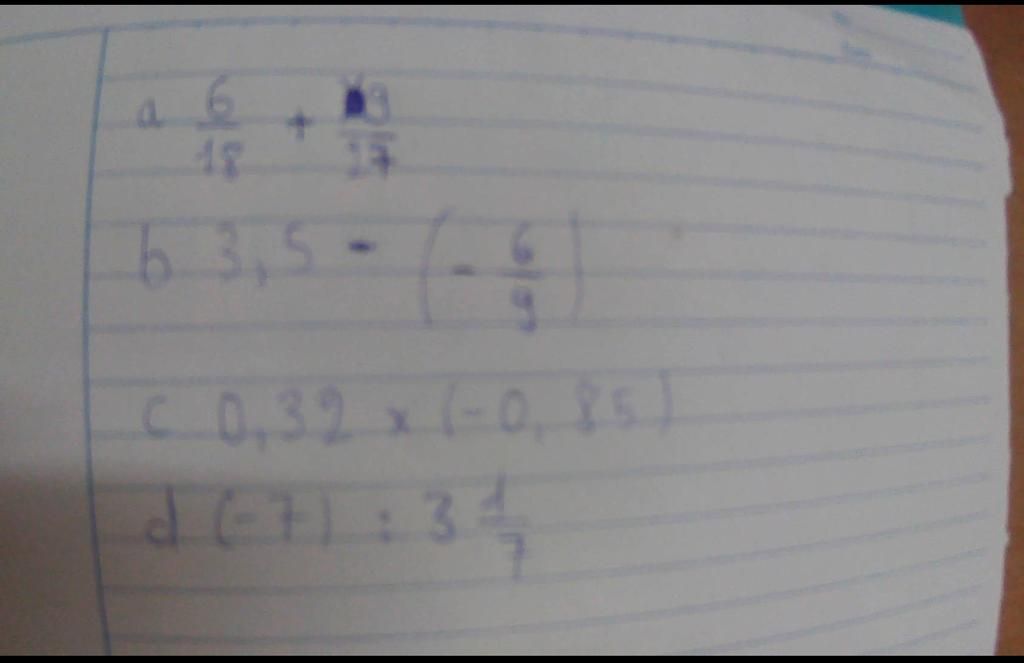 a 6/18 + 9/27
b 3,5 - (- 6/9)
c 0,32 x (-0,85)
d (-7) : 3 1/7